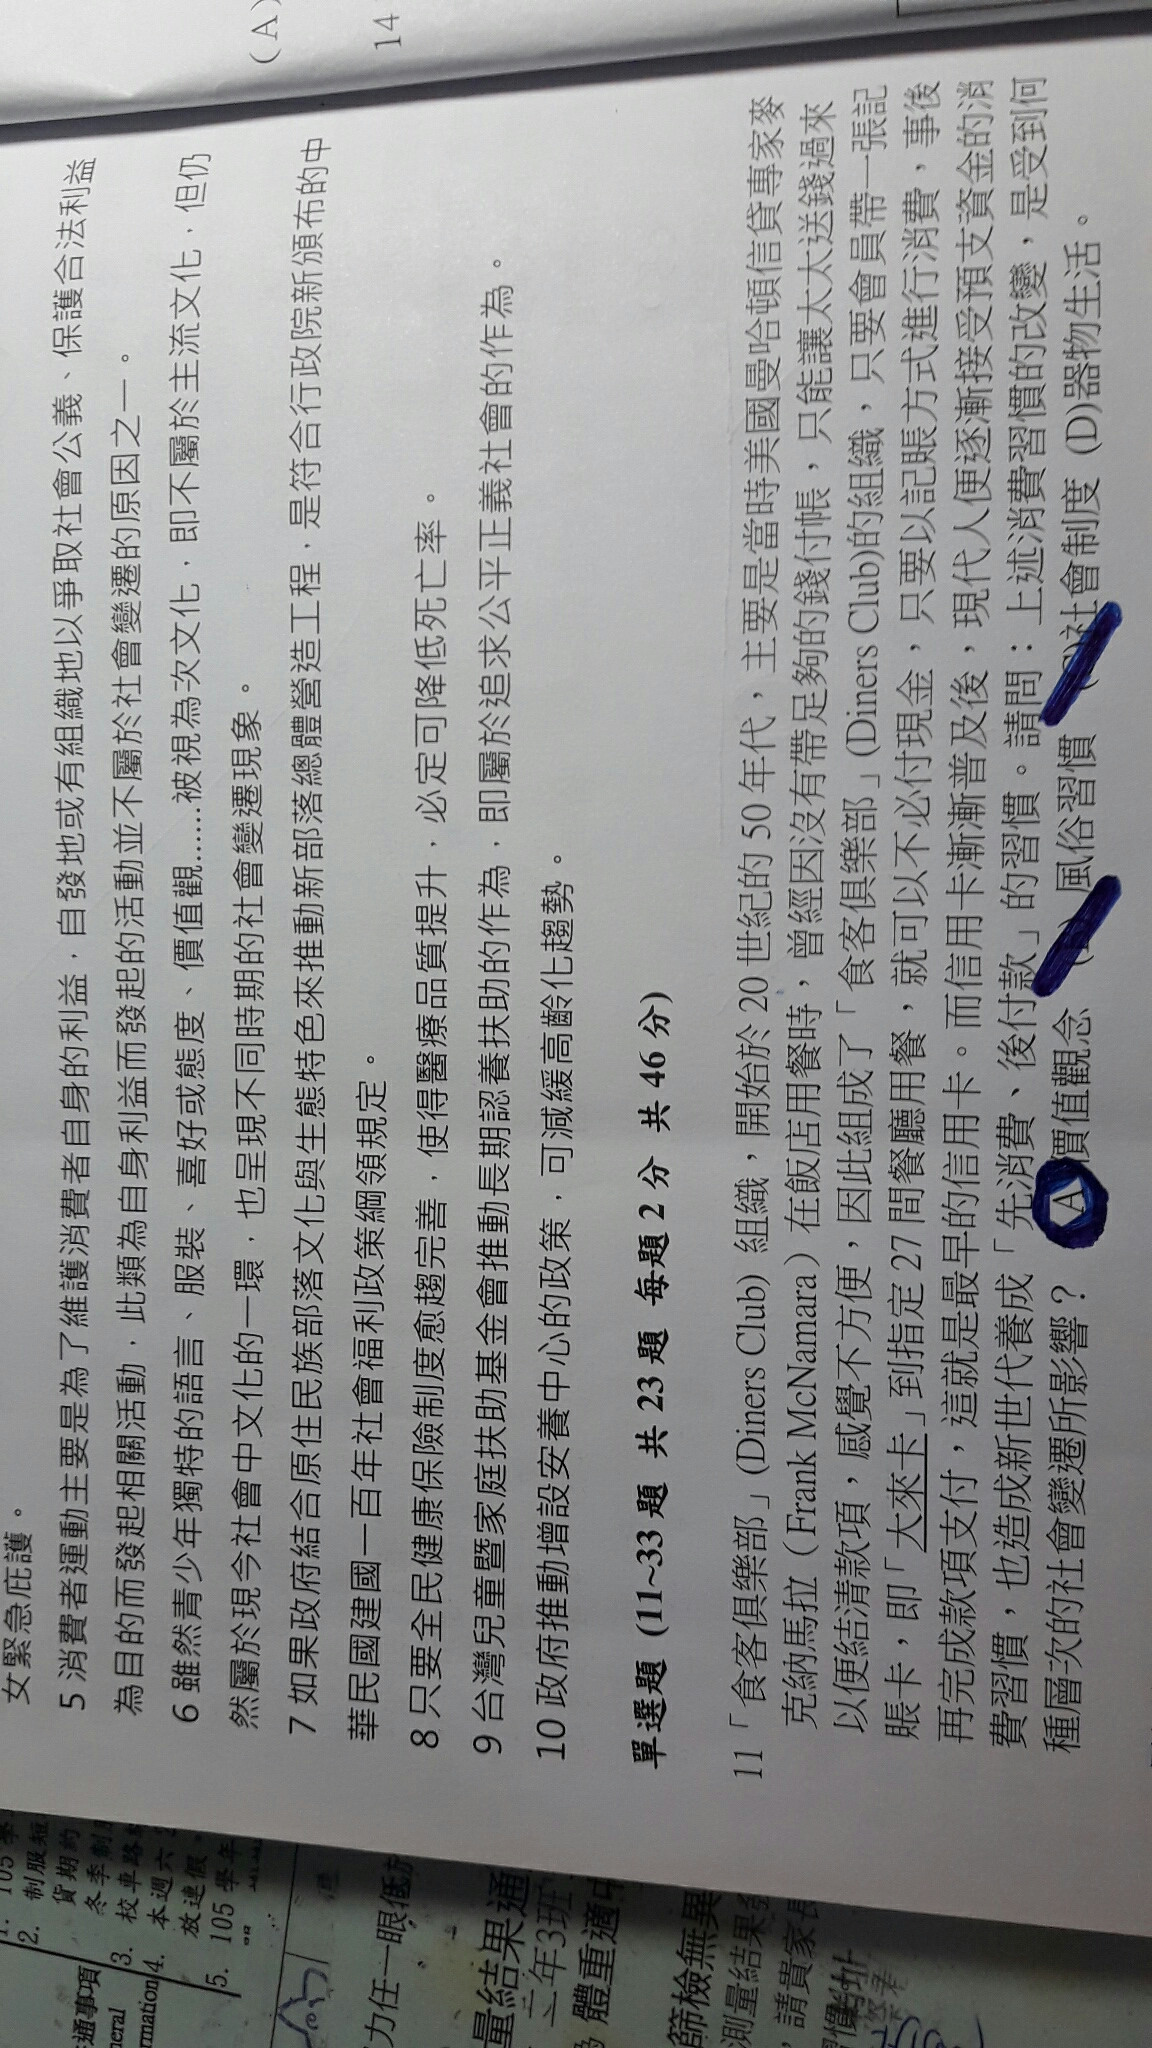 (A)
14
女緊急庇護。
5 消費者運動主要是為了維護消費者自身的利益，自發地或有組織地以爭取社會公義、保護合法利益
為目的而發起相關活動，此類為自身利益而發起的活動並不屬於社會變遷的原因之一。
6 雖然青少年獨特的語言、服裝、喜好或態度、價值觀......被視為次文化，即不屬於主流文化，但仍
然屬於現今社會中文化的一環，也呈現不同時期的社會變遷現象。
7 如果政府結合原住民族部落文化與生態特色來推動新部落總體營造工程，是符合行政院新頒布的中
華民國建國一百年社會福利政策綱領規定。
8 只要全民健康保險制度愈趨完善，使得醫療品質提升，必定可降低死亡率。
9 台灣兒童暨家庭扶助基金會推動長期認養扶助的作為，即屬於追求公平正義社會的作為。
10 政府推動增設安養中心的政策，可減緩高齡化趨勢。
單選題 (11~33 題 共 23 題 每題 2 分 共 46 分)
11「食客俱樂部」(Diners Club) 組織，開始於 20 世紀的 50 年代，主要是當時美國曼哈頓信貸專家麥
克納馬拉（Frank McNamara）在飯店用餐時，曾經因沒有帶足夠的錢付帳，只能讓太太送錢過來
以便結清款項，感覺不方便，因此組成了「食客俱樂部」(Diners Club)的組織，只要會員帶一張記
賬卡，即「大來卡」到指定 27 間餐廳用餐，就可以不必付現金，只要以記賬方式進行消費，事後
再完成款項支付，這就是最早的信用卡。而信用卡漸漸普及後，現代人便逐漸接受預支資金的消
費習慣，也造成新世代養成「先消費、後付款」的習慣。請問：上述消費習慣的改變，是受到何
種層次的社會變遷所影響？ A 價值觀念 (B) 風俗習慣 (C)社會制度 (D)器物生活。
2.
3.
4.
5. 105 學年
通事項
量結果通
二年3班
體重適中
篩檢無異
測量結果
，請貴家長
力任一眼低